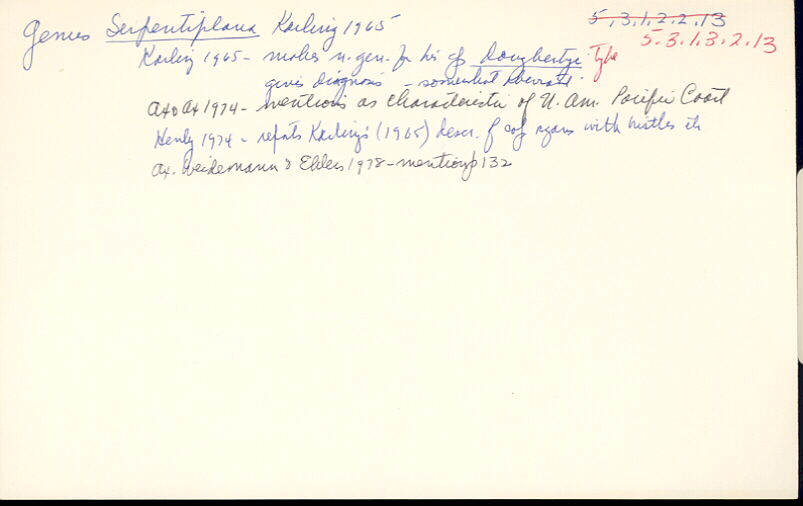 Genus Serpentiplana Karling 1965
5.3.1.2.2.13
5.3.1.3.2.13
Karling 1965 - makes n. gen. for his sp doughertyi Type
gives diagnosis - somewhat aberrant.
Ax & Ax 1974 - mentions as characteristic of N. Am. Pacific Coast
Henly 1974 - repeats Karling's (1965) descr. of cop organs with bristles etc
Ax, Weidemann & Ehlers 1978 - mention p 132